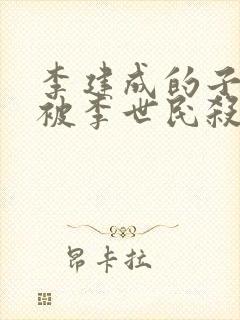 李建成的子
被李世民殺
昂卡拉